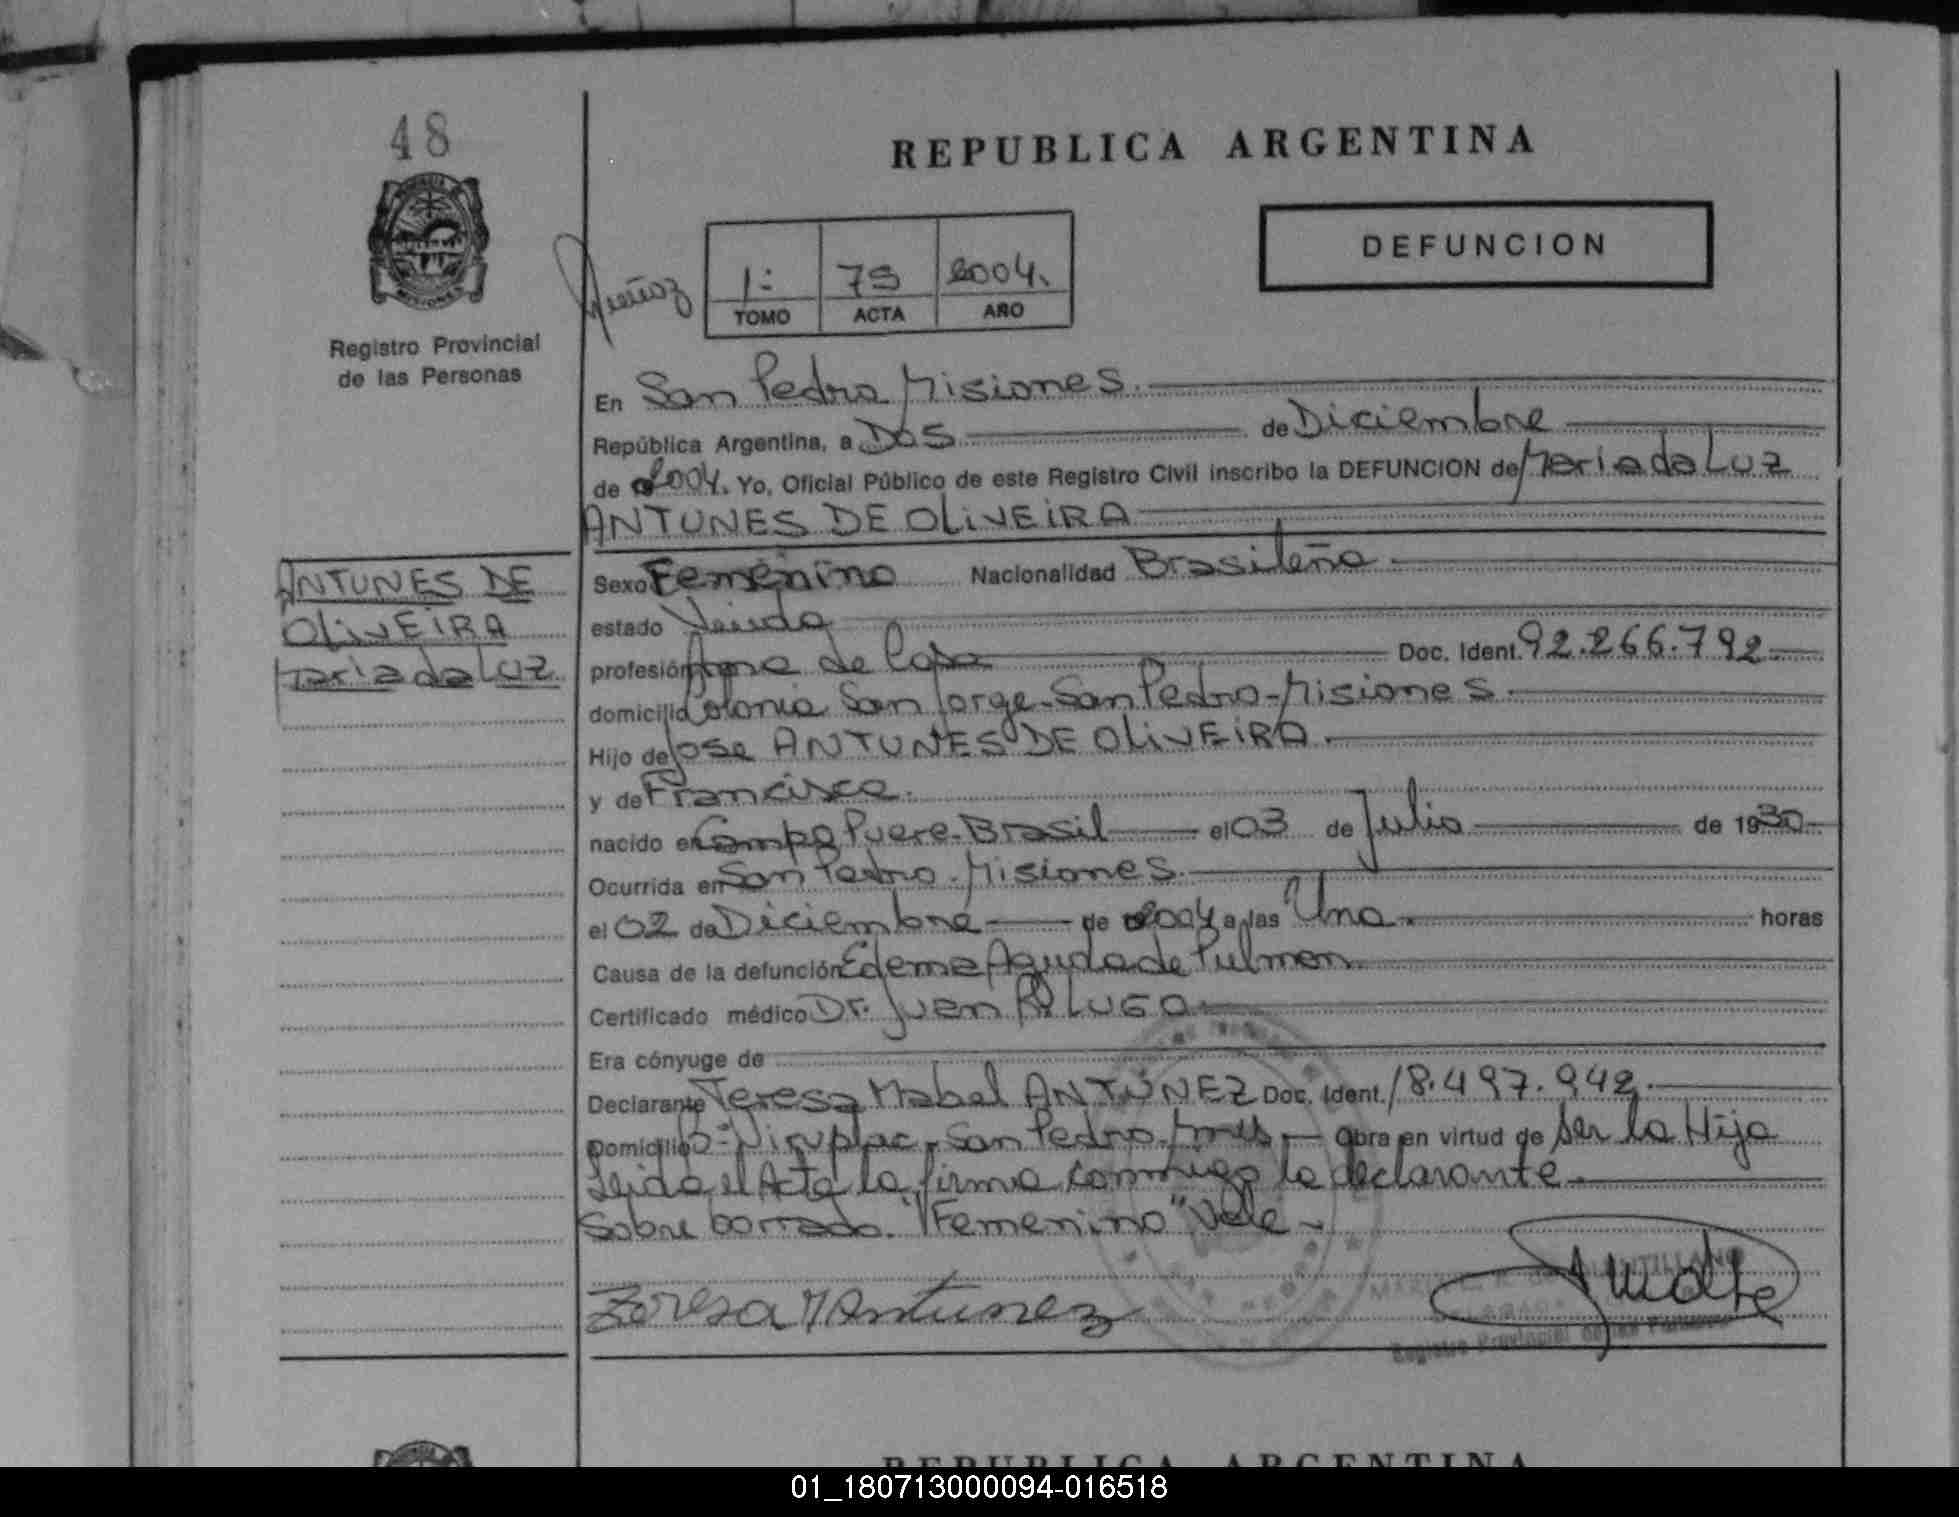 48
REPUBLICA ARGENTINA
DEFUNCION
Muñoz
1: 79 2004.
TOMO ACTA AÑO
Registro Provincial
de las Personas
En San Pedro Misiones.
República Argentina, a Dos de Diciembre
de 2004. Yo, Oficial Público de este Registro Civil inscribo la DEFUNCION de Maria da Luz
ANTUNES DE OLIVEIRA
ANTUNES DE
OLIVEIRA
Maria da Luz
Sexo Femenino Nacionalidad Brasileña
estado Viuda
profesión Ama de Casa Doc. Ident. 92.266.792.
domicilio Colonia San Jorge-San Pedro-Misiones
Hijo de Jose ANTUNES DE OLIVEIRA.
y de Francisca.
nacido en Campo Puere-Brasil el 03 de Julio de 1930
Ocurrida en San Pedro-Misiones.
el 02 de Diciembre de 2004 a las Una. horas
Causa de la defunción Edema Agudo de Pulmon
Certificado médico Dr. Juan LUGO
Era cónyuge de
Declarante Teresa Mabel ANTUNEZ Doc. Ident. 18.497.942.
Domicilio San Pedro. Mnes obra en virtud de Ser la Hija
Leida el Acta la firma conmigo la declarante.
Sobre borrado. "Femenino" Vale
Teresa M Antunez
Registro Provincial de las Personas
REPUBLICA ARGENTINA
01_180713000094-016518